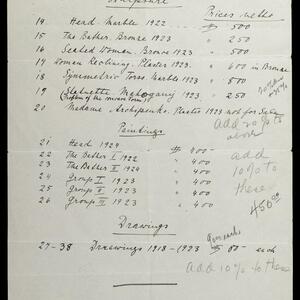 Sculpture
Prices netto
14 Head - Marble 1922 $ 500
15 The Bather. Bronze 1923 " 250
16 Seated Woman. Bronze 1923 " 500
17 Woman Reclining. Plaster 1923. " 600 in Bronze
18 Symmetric Torso. Marble 1923 $ 500
19 Statuette Mahogany 1923 $ 250
20 Madame Archipenko. Plaster 1923 not for Sale
add 20% to
above
Paintings
21 Head 1924 $ 400 -
22 The Bather I 1922 " 400 -
23 The Bather II 1924 " 400 -
24 Group I 1923 " 400 -
25 Group II 1923 " 400 -
26 Group III 1923 " 400 -
add
10% to
these
450.00
Drawings
27-38 Drawings 1918-1923 $ 80 - each
add 10% to these